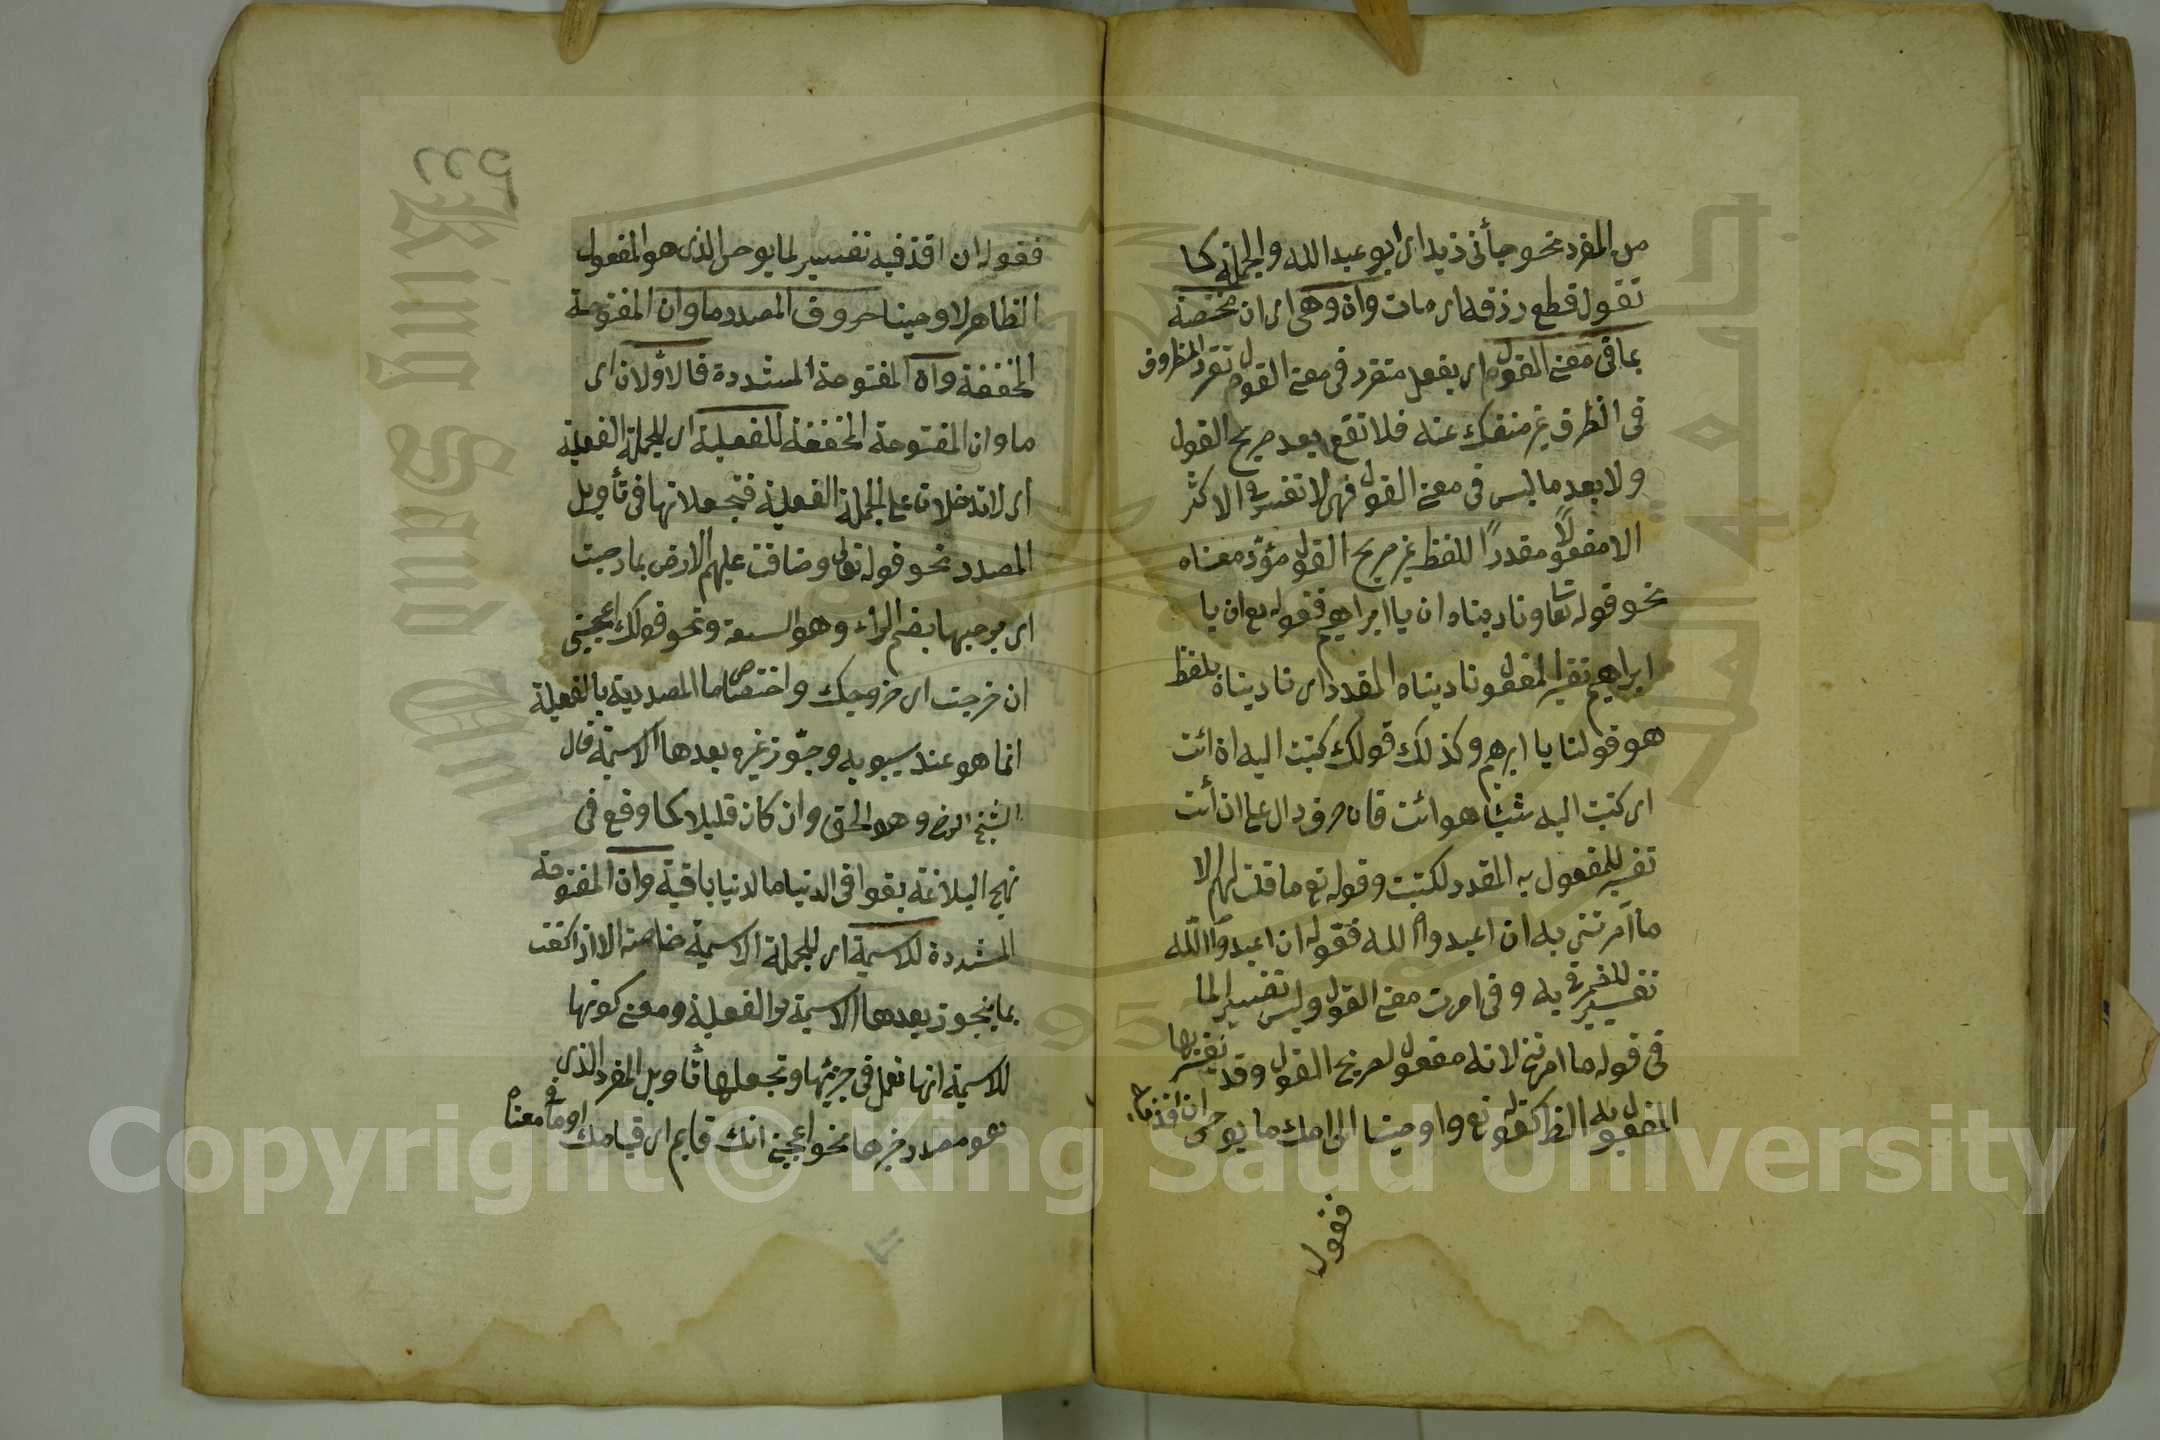 من المفرد نحو جأنى زيد اى ابو عبد الله والجملة كما
تقول قطع رزقه اى مات وان وهى اى ان مختصة
بما فى معنى القول اى بفعل متقرر فى معنى القول تقرر المظروف
فى الظرف غير منفك عنه فلا تقع بعد صريح القول
ولا بعد ما ليس فى معنى القول فهى لا تفسر فى الاكثر
الا مفعولاً مقدراً للفظ غير صريح القول مؤدٍ معناه
نحو قوله تعا وناديناه ان يا ابراهيم فقوله تع ان يا
ابراهيم تفسير لمفعول ناديناه المقدر اى ناديناه بلفظ
هو قولنا يا ابرهيم وكذلك قولك كتبت اليه ان ائت
اى كتبت اليه شيئا هو ائت فان حرف دال على ان أئت
تفسير للمفعول به المقدر لكتبت وقوله تع ما قلت لهم الا
ما امرتنى به ان اعبدوا الله فقوله ان اعبدوا الله
تفسير للضمير فى به وفى امرت معنى القول وليس تفسيرا لما
فى قوله ما امرتنى لانه مفعول لصريح القول وقد يفسر بها
المفعول به الظ كقوله تع واوحينا الى امك ما يوحى ان اقذفيه
فقول
فقوله ان اقذفيه تفسير لما يوحى الذى هو المفعول
الظاهر لاوحينا حروف المصدر ما وان المفتوحة
المخففة وان المفتوحة المشددة فالاولان اى
ما وان المفتوحة المخففة للفعلية اى للجملة الفعلية
اى تدخلان على الجملة الفعلية فتجعلانها فى تأويل
المصدر نحو قوله تعالى وضاقت عليهم الارض بما رحبت
اى برحبها بضم الراء وهو السعة ونحو قولك اعجبنى
ان خرجت اى خروجك واختصاص ما المصدرية بالفعلية
انما هو عند سيبويه وجوّز غيره بعدها الاسمية قال
الشيخ الرضى وهو الحق وان كان قليلا كما وقع فى
نهج البلاغة بقوا فى الدنيا ما الدنيا باقية وان المفتوحة
المشددة للاسمية اى للجملة الاسمية خاصة الا اذا كفت
بما فيجوز بعدها الاسمية والفعلية ومعنى كونها
للاسمية انها تعمل فى جزئيها وتجعلها تأويل المفرد الذى
هو مصدر خبرها نحو اعجبنى انك قايم اى قيامك او ما فى معناه